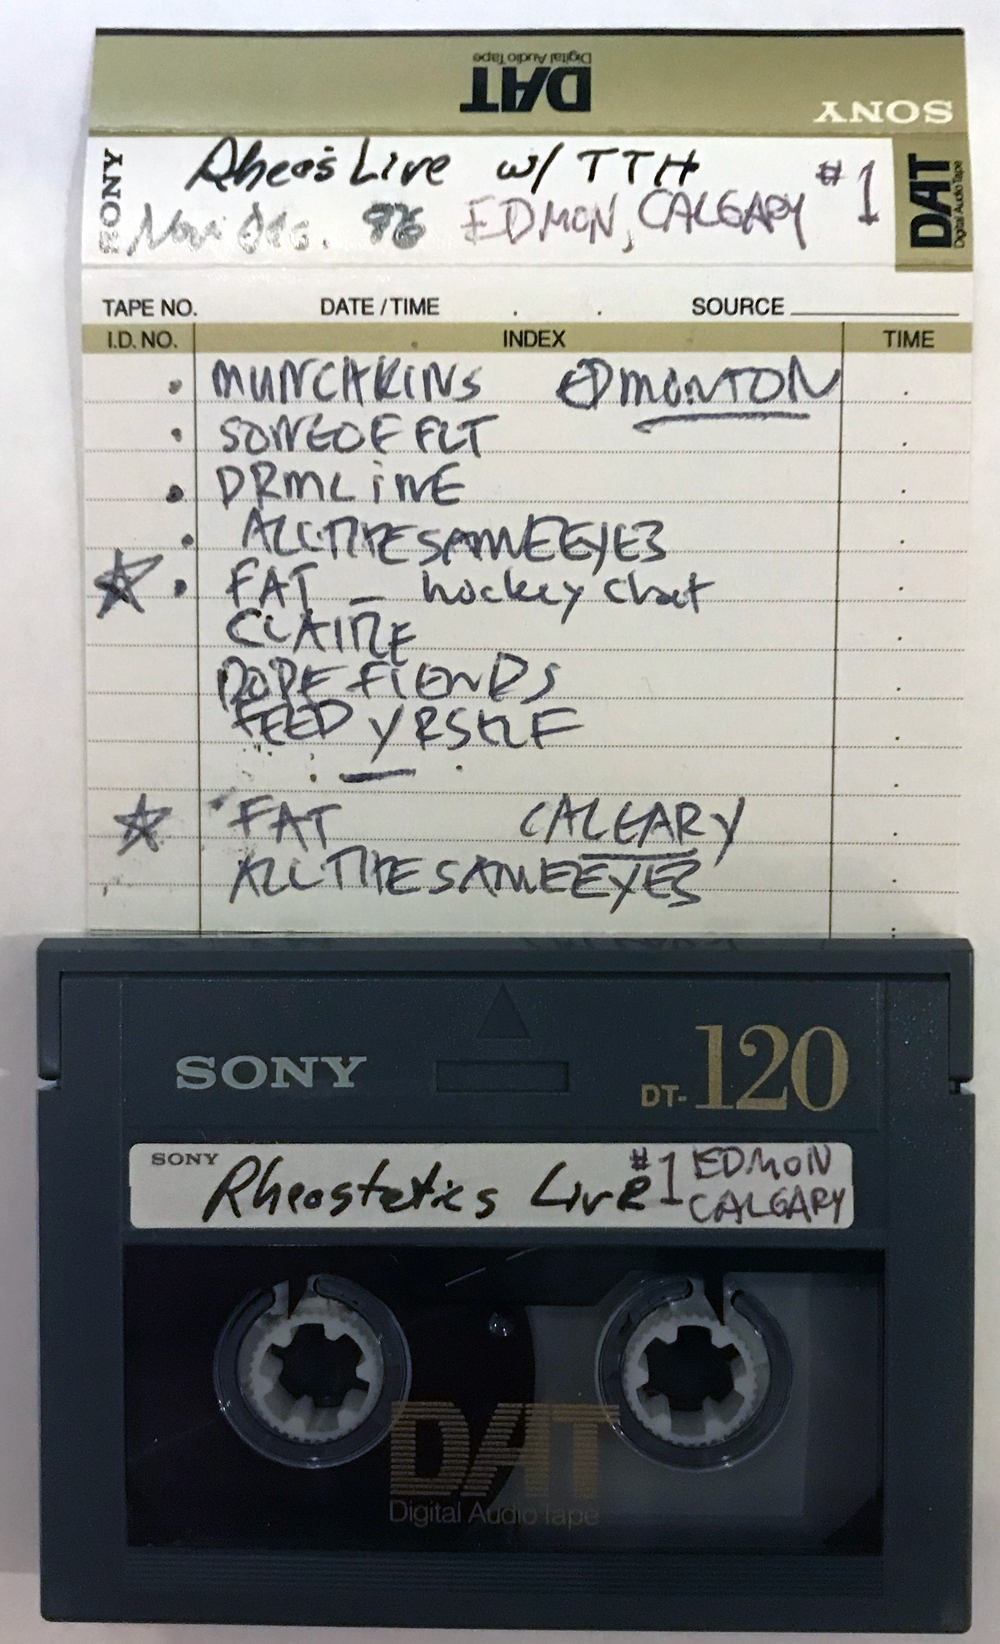 DAT
Digital Audio Tape
SONY
SONY Rheos Live w/ TTH #1
Nov. Dec. 96 EDMON, CALGARY
DAT
Digital Audio Tape
TAPE NO. DATE / TIME . . SOURCE
I.D. NO. INDEX TIME
• MUNCHKINS EDMONTON
• SONGOF FLT
• DRMLINE
• ALLTHESAMEEYES
☆ • FAT — hockey chat
CLAIRE
DOPE FIENDS
FEED YRSELF
☆ FAT CALGARY
ALLTHESAMEEYES
SONY DT-120
SONY Rheostatics Live #1 EDMON
CALGARY
DAT
Digital Audio Tape